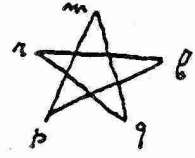 m
n l
p q